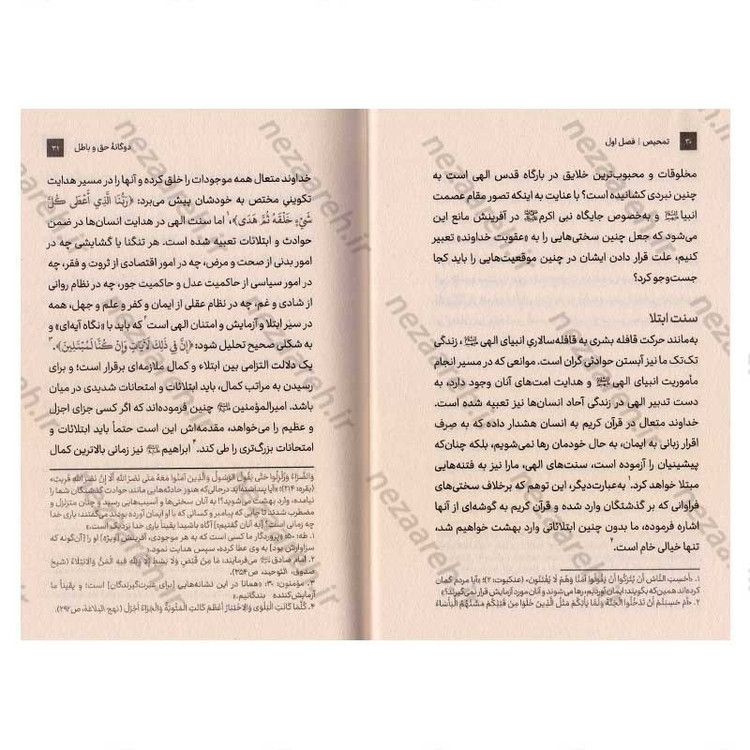 ۳۰ تمحیص | فصل اول
مخلوقات و محبوب‌ترین خلایق در بارگاه قدس الهی است به
چنین نبردی کشانیده است؟ با عنایت به اینکه تصور مقام عصمت
انبیا و به‌خصوص جایگاه نبی اکرم در آفرینش مانع این
می‌شود که جعل چنین سختی‌هایی را به «عقوبت خداوند» تعبیر
کنیم، علت قرار دادن ایشان در چنین موقعیت‌هایی را باید کجا
جست‌وجو کرد؟
سنت ابتلا
به‌مانند حرکت قافله بشری به قافله‌سالاریِ انبیای الهی، زندگی
تک‌تک ما نیز آبستن حوادثی گران است. موانعی که در مسیر انجام
مأموریت انبیای الهی و هدایت امت‌های آنان وجود دارد، به
دست تدبیر الهی در زندگی آحاد انسان‌ها نیز تعبیه شده است.
خداوند متعال در قرآن کریم به انسان هشدار داده که به صِرف
اقرار زبانی به ایمان، به حال خودمان رها نمی‌شویم، بلکه چنان‌که
پیشینیان را آزموده است، سنت‌های الهی، مارا نیز به فتنه‌هایی
مبتلا خواهد کرد. به‌عبارت‌دیگر، این توهم که برخلاف سختی‌های
فراوانی که بر گذشتگان وارد شده و قرآن کریم به گوشه‌ای از آنها
اشاره فرموده، ما بدون چنین ابتلائاتی وارد بهشت خواهیم شد،
تنها خیالی خام است.۲
۱. «أَحَسِبَ النَّاسُ أَن يُتْرَكُوا أَن يَقُولُوا آمَنَّا وَهُمْ لَا يُفْتَنُونَ» (عنکبوت: ۲)؛ «آیا مردم گمان
کرده‌اند همین‌که بگویند: ایمان آوردیم، رها می‌شوند و آنان مورد آزمایش قرار نمی‌گیرند؟»
۲. «أَمْ حَسِبْتُمْ أَن تَدْخُلُوا الْجَنَّةَ وَلَمَّا يَأْتِكُم مَّثَلُ الَّذِينَ خَلَوْا مِن قَبْلِكُم مَّسَّتْهُمُ الْبَأْسَاءُ
دوگانهٔ حق و باطل ۳۱
خداوند متعال همه موجودات را خلق کرده و آنها را در مسیر هدایت
تکوینی مختص به خودشان پیش می‌برد: ﴿رَبُّنَا الَّذِي أَعْطَى كُلَّ
شَيْءٍ خَلْقَهُ ثُمَّ هَدَى﴾؛۱ اما سنت الهی در هدایت انسان‌ها در ضمن
حوادث و ابتلائات تعبیه شده است. هر تنگنا یا گشایشی چه در
امور بدنی از صحت و مرض، چه در امور اقتصادی از ثروت و فقر، چه
در امور سیاسی از حاکمیت عدل و حاکمیت جور، چه در نظام روانی
از شادی و غم، چه در نظام عقلی از ایمان و کفر و علم و جهل، همه
در سیَر ابتلا و آزمایش و امتنان الهی است۲ که باید با «نگاه آیه‌ای» و
به شکلی صحیح تحلیل شود: ﴿إِنَّ فِي ذَلِكَ لَآيَاتٍ وَإِن كُنَّا لَمُبْتَلِينَ﴾.۳
یک دلالت التزامی بین ابتلاء و کمال ملازمه‌ای برقرار است؛ و برای
رسیدن به مراتب کمال، باید ابتلائات و امتحانات شدیدی در میان
باشد. امیرالمؤمنین چنین فرموده‌اند که اگر کسی جزای اجزل
و عظیم را می‌خواهد، مقدمه‌اش این است حتماً باید ابتلائات و
امتحانات بزرگ‌تری را طی کند.۴ ابراهیم نیز زمانی بالاترین کمال
وَالضَّرَّاءُ وَزُلْزِلُوا حَتَّى يَقُولَ الرَّسُولُ وَالَّذِينَ آمَنُوا مَعَهُ مَتَى نَصْرُ اللَّهِ أَلَا إِنَّ نَصْرَ اللَّهِ قَرِيبٌ»
(بقره: ۲۱۴)؛ «آیا پنداشته‌اید درحالی‌که هنوز حادثه‌هایی مانند حوادث گذشتگان شما را
نیامده، وارد بهشت می‌شوید؟! به آنان سختی‌ها و آسیب‌هایی رسید و چنان متزلزل و
مضطرب شدند تا جایی که پیامبر و کسانی که با او ایمان آورده بودند می‌گفتند: یاری خدا
چه زمانی است؟ [به آنان گفتیم:] آگاه باشید! یقیناً یاری خدا نزدیک است.»
۱. طه: ۵۰؛ «پروردگار ما کسی است که به هر موجودی، آفرینش [ویژهٔ] او را [آن‌گونه که
سزاوارش بود] به وی عطا کرده، سپس هدایت نمود.»
۲. امام صادق می‌فرمایند: مَا مِنْ قَبْضٍ وَلَا بَسْطٍ إِلَّا وَلِلَّهِ فِيهِ الْمَنُّ وَالِابْتِلَاءُ (شیخ
صدوق، التوحید، ص۳۵۴).
۳. مؤمنون: ۳۰؛ «همانا در این نشانه‌هایی [برای عبرت‌گیرندگان] است؛ و یقیناً ما
آزمایش‌کننده بندگانیم.»
۴. كُلَّمَا كَانَتِ الْبَلْوَى وَالِاخْتِبَارُ أَعْظَمَ كَانَتِ الْمَثُوبَةُ وَالْجَزَاءُ أَجْزَلَ (نهج‌البلاغة، ص۲۹۲).
nezaareh.ir